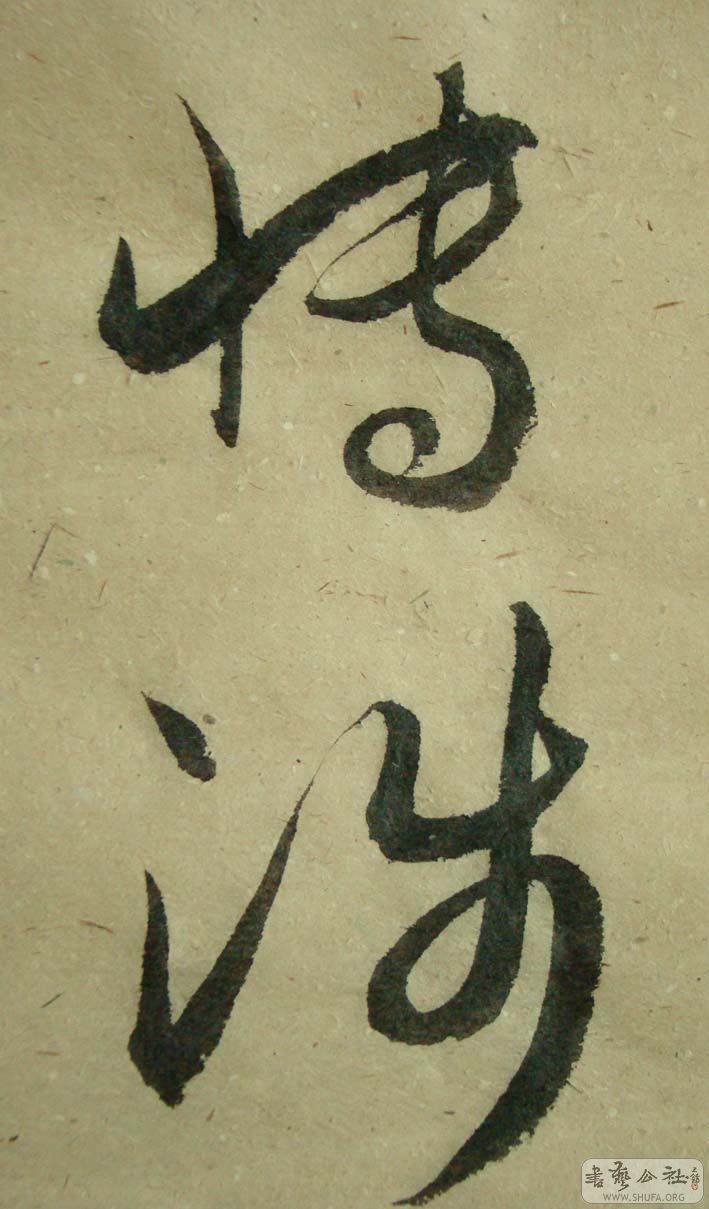 博涉
書藝公社
WWW.SHUFA.ORG